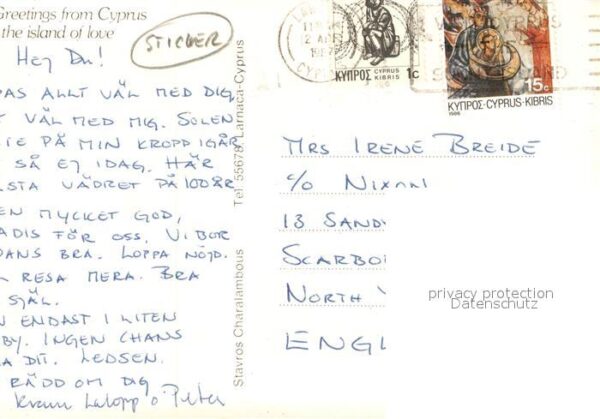 Greetings from Cyprus
the island of love
STICKER
Hej Du!
PAS ALLT VÄL MED DIG,
VÄL MED MIG. SOLEN
PÅ MIN KROPP IGÅR
SÅ EJ IDAG. HÄR
STA VÄDRET PÅ 100 ÅR
EN MYCKET GOD,
ADIS FÖR OSS. VI BOR
DANS BRA. LOPPA NÖJD.
RESA MERA. BRA
SJÄL.
N ENDAST I LITEN
BY. INGEN CHANS
A DIT. LEDSEN.
RÄDD OM DIG
Kram Lalopp o Peter
Stavros Charalambous Tel. 55678, Larnaca-Cyprus
ΚΥΠΡΟΣ CYPRUS KIBRIS 1c
ΚΥΠΡΟΣ-CYPRUS-KIBRIS 15c
1986
MRS IRENE BREIDE
c/o NIXON
13 SAND
SCARBO
NORTH
ENGL
privacy protection
Datenschutz